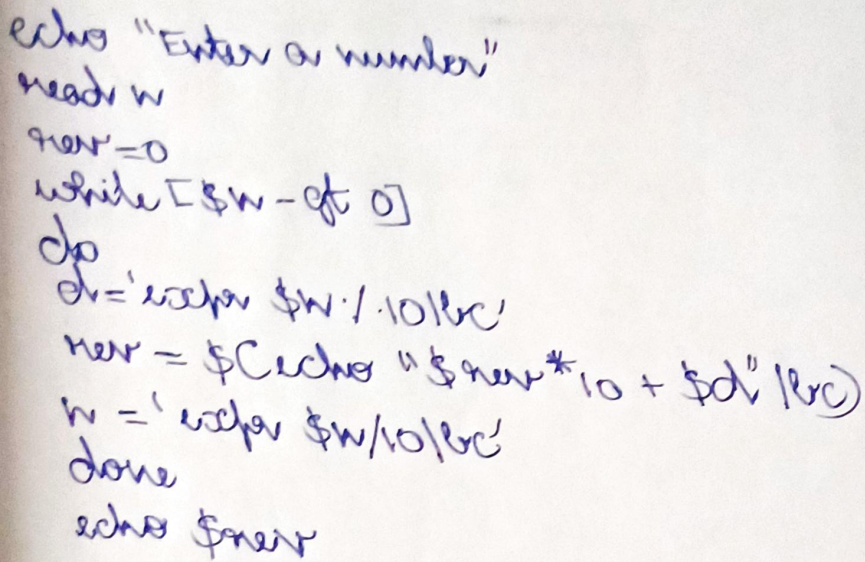 echo "Enter a number"
read n
rev=0
while [$n -gt 0]
do
d='expr $n % 10|bc'
rev = $(echo "$rev*10 + $d" |bc)
n ='expr $n/10|bc'
done
echo $rev